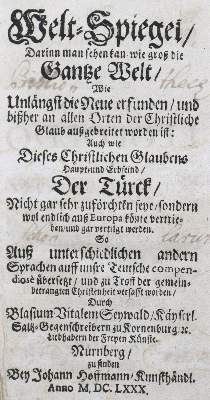 Welt-Spiegel/
Darinn man sehen kan wie groß die
Gantze Welt/
Wie
Unlängst die Neue erfunden/ und
bißher an allen Orten der Christliche
Glaub außgebreitet worden ist:
Auch wie
Dieses Christlichen Glaubens
Haupt und Erbfeind/
Der Türck/
Nicht gar sehr zuförchten seye/ sondern
wol endlich auß Europa könte vertrie-
ben/ und gar vertilgt werden.
So
Auß unterschiedlichen andern
Sprachen auff unsre Teutsche compen-
diosè übersetzt/ und zu Trost der gemein-
betrangten Christenheit verfasst worden/
Durch
Blasium Vitalem Seywald/ Käyserl.
Saltz-Gegenschreibern zu Kornenburg/ ꝛc.
Liebhabern der Freyen Künste.
Nürnberg/
zu finden
Bey Johann Hoffmann/ Kunsthändl.
Anno M, DC. LXXX.